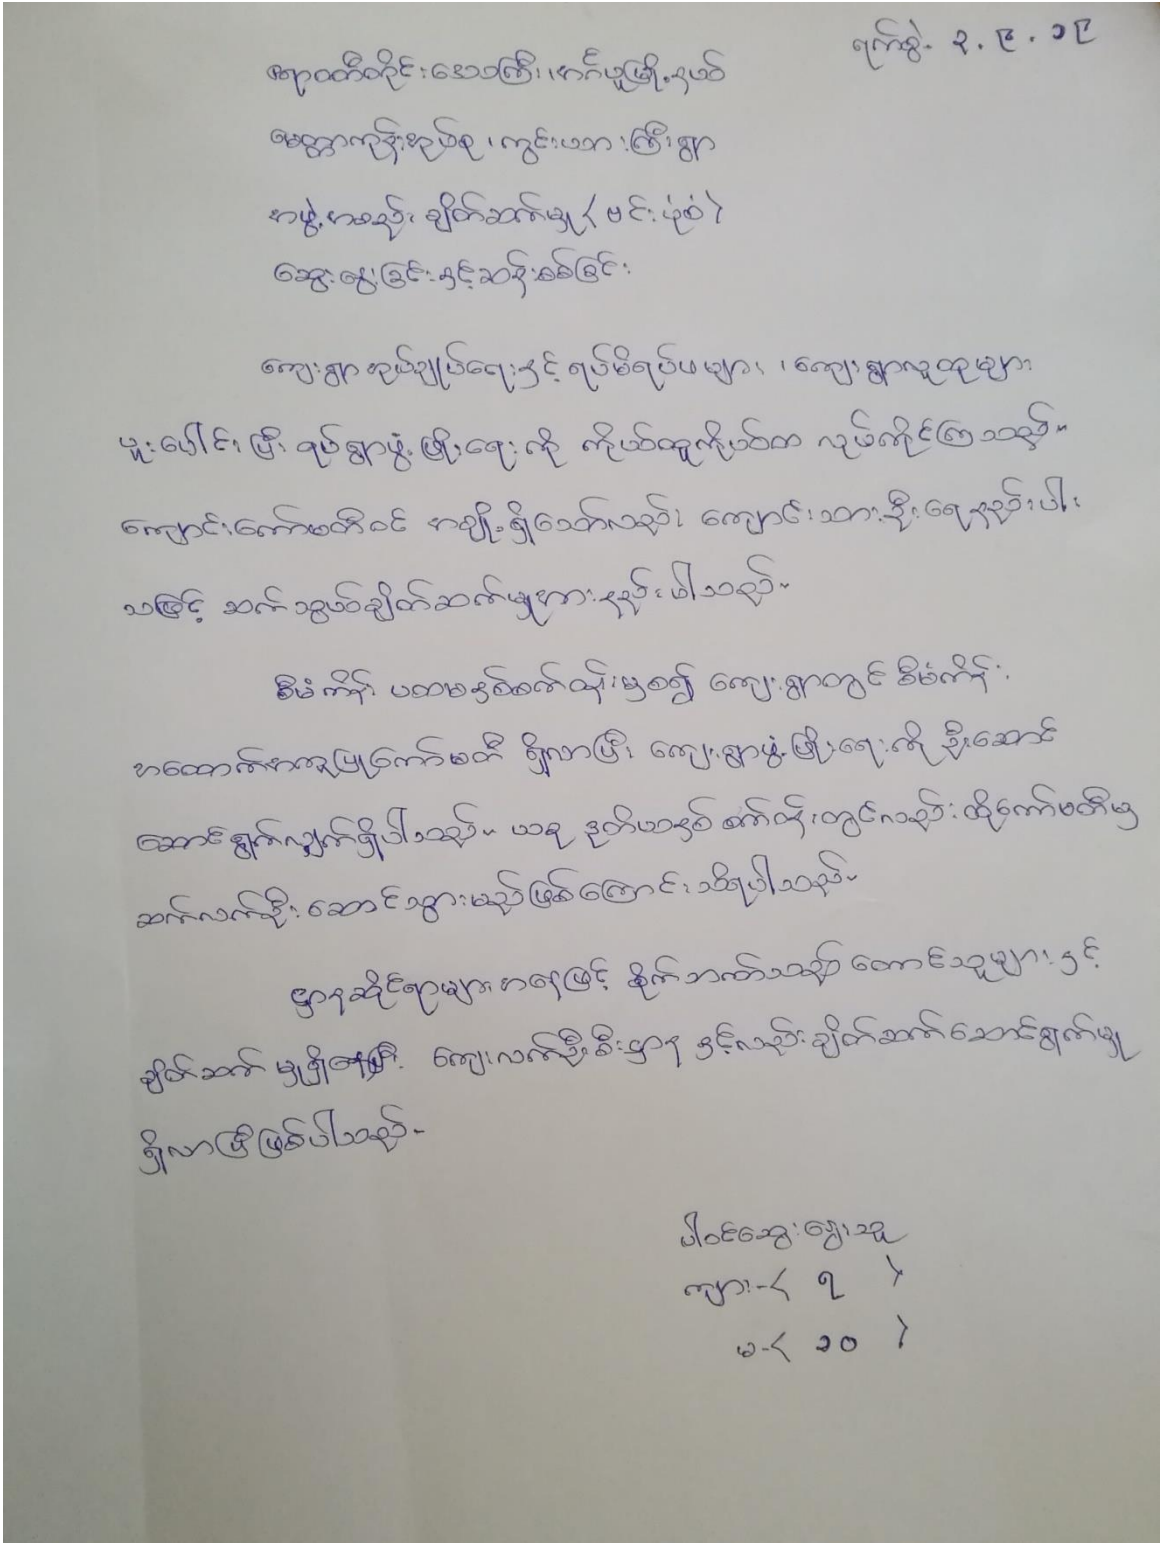 ရက်စွဲ- ၃.၉.၁၉
ဧရာဝတီတိုင်းဒေသကြီး၊ အင်္ဂပူမြို့နယ်
မေတ္တာကုန်းအုပ်စု၊ ကွင်းယားကြီးရွာ
အဖွဲ့အစည်း ချိတ်ဆက်မှု (ဗင်းပုံစံ)
ဆွေးနွေးခြင်းနှင့်ဆန်းစစ်ခြင်း
ကျေးရွာအုပ်ချုပ်ရေးနှင့် ရပ်မိရပ်ဖများ၊ ကျေးရွာလူထုများ
ပူးပေါင်းပြီး ရပ်ရွာဖွံ့ဖြိုးရေးကို ကိုယ်ထူကိုယ်ထ လုပ်ကိုင်ကြသည်။
ကျောင်းကော်မတီဝင် အချို့ရှိသော်လည်း ကျောင်းသားဦးရေနည်းပါး
သဖြင့် ဆက်သွယ်ချိတ်ဆက်မှုအားနည်းပါသည်။
စီမံကိန်း ပထမနှစ်စက်ဝန်းမှစ၍ ကျေးရွာတွင် စီမံကိန်း
အထောက်အကူပြုကော်မတီ ရှိလာပြီး ကျေးရွာဖွံ့ဖြိုးရေးကို ဦးဆောင်
ဆောင်ရွက်လျှက်ရှိပါသည်။ ယခု ဒုတိယနှစ် စက်ဝန်းတွင်လည်း ထိုကော်မတီမှ
ဆက်လက်ဦးဆောင်သွားမည်ဖြစ်ကြောင်း သိရပါသည်။
ဌာနဆိုင်ရာများအနေဖြင့် စိုက်ဘဏ်သည် တောင်သူများနှင့်
ချိတ်ဆက် မှုရှိနေပြီး ကျေးလက်ဦးစီးဌာန နှင့်လည်း ချိတ်ဆက်ဆောင်ရွက်မှု
ရှိလာပြီဖြစ်ပါသည်။
ပါဝင်ဆွေးနွေးသူ
ကျား-( ၇ )
မ-( ၁၀ )